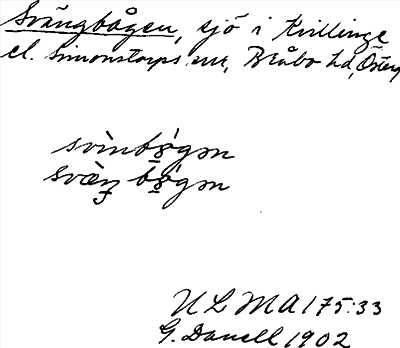 Svängbågen, sjö i Kvillinge
el. Simonstorps snr, Bråbo hd, Österg
svìnbǫ́gən
svæ̀nʒ bǫ́gən
ULMA 175:33
G. Danell 1902